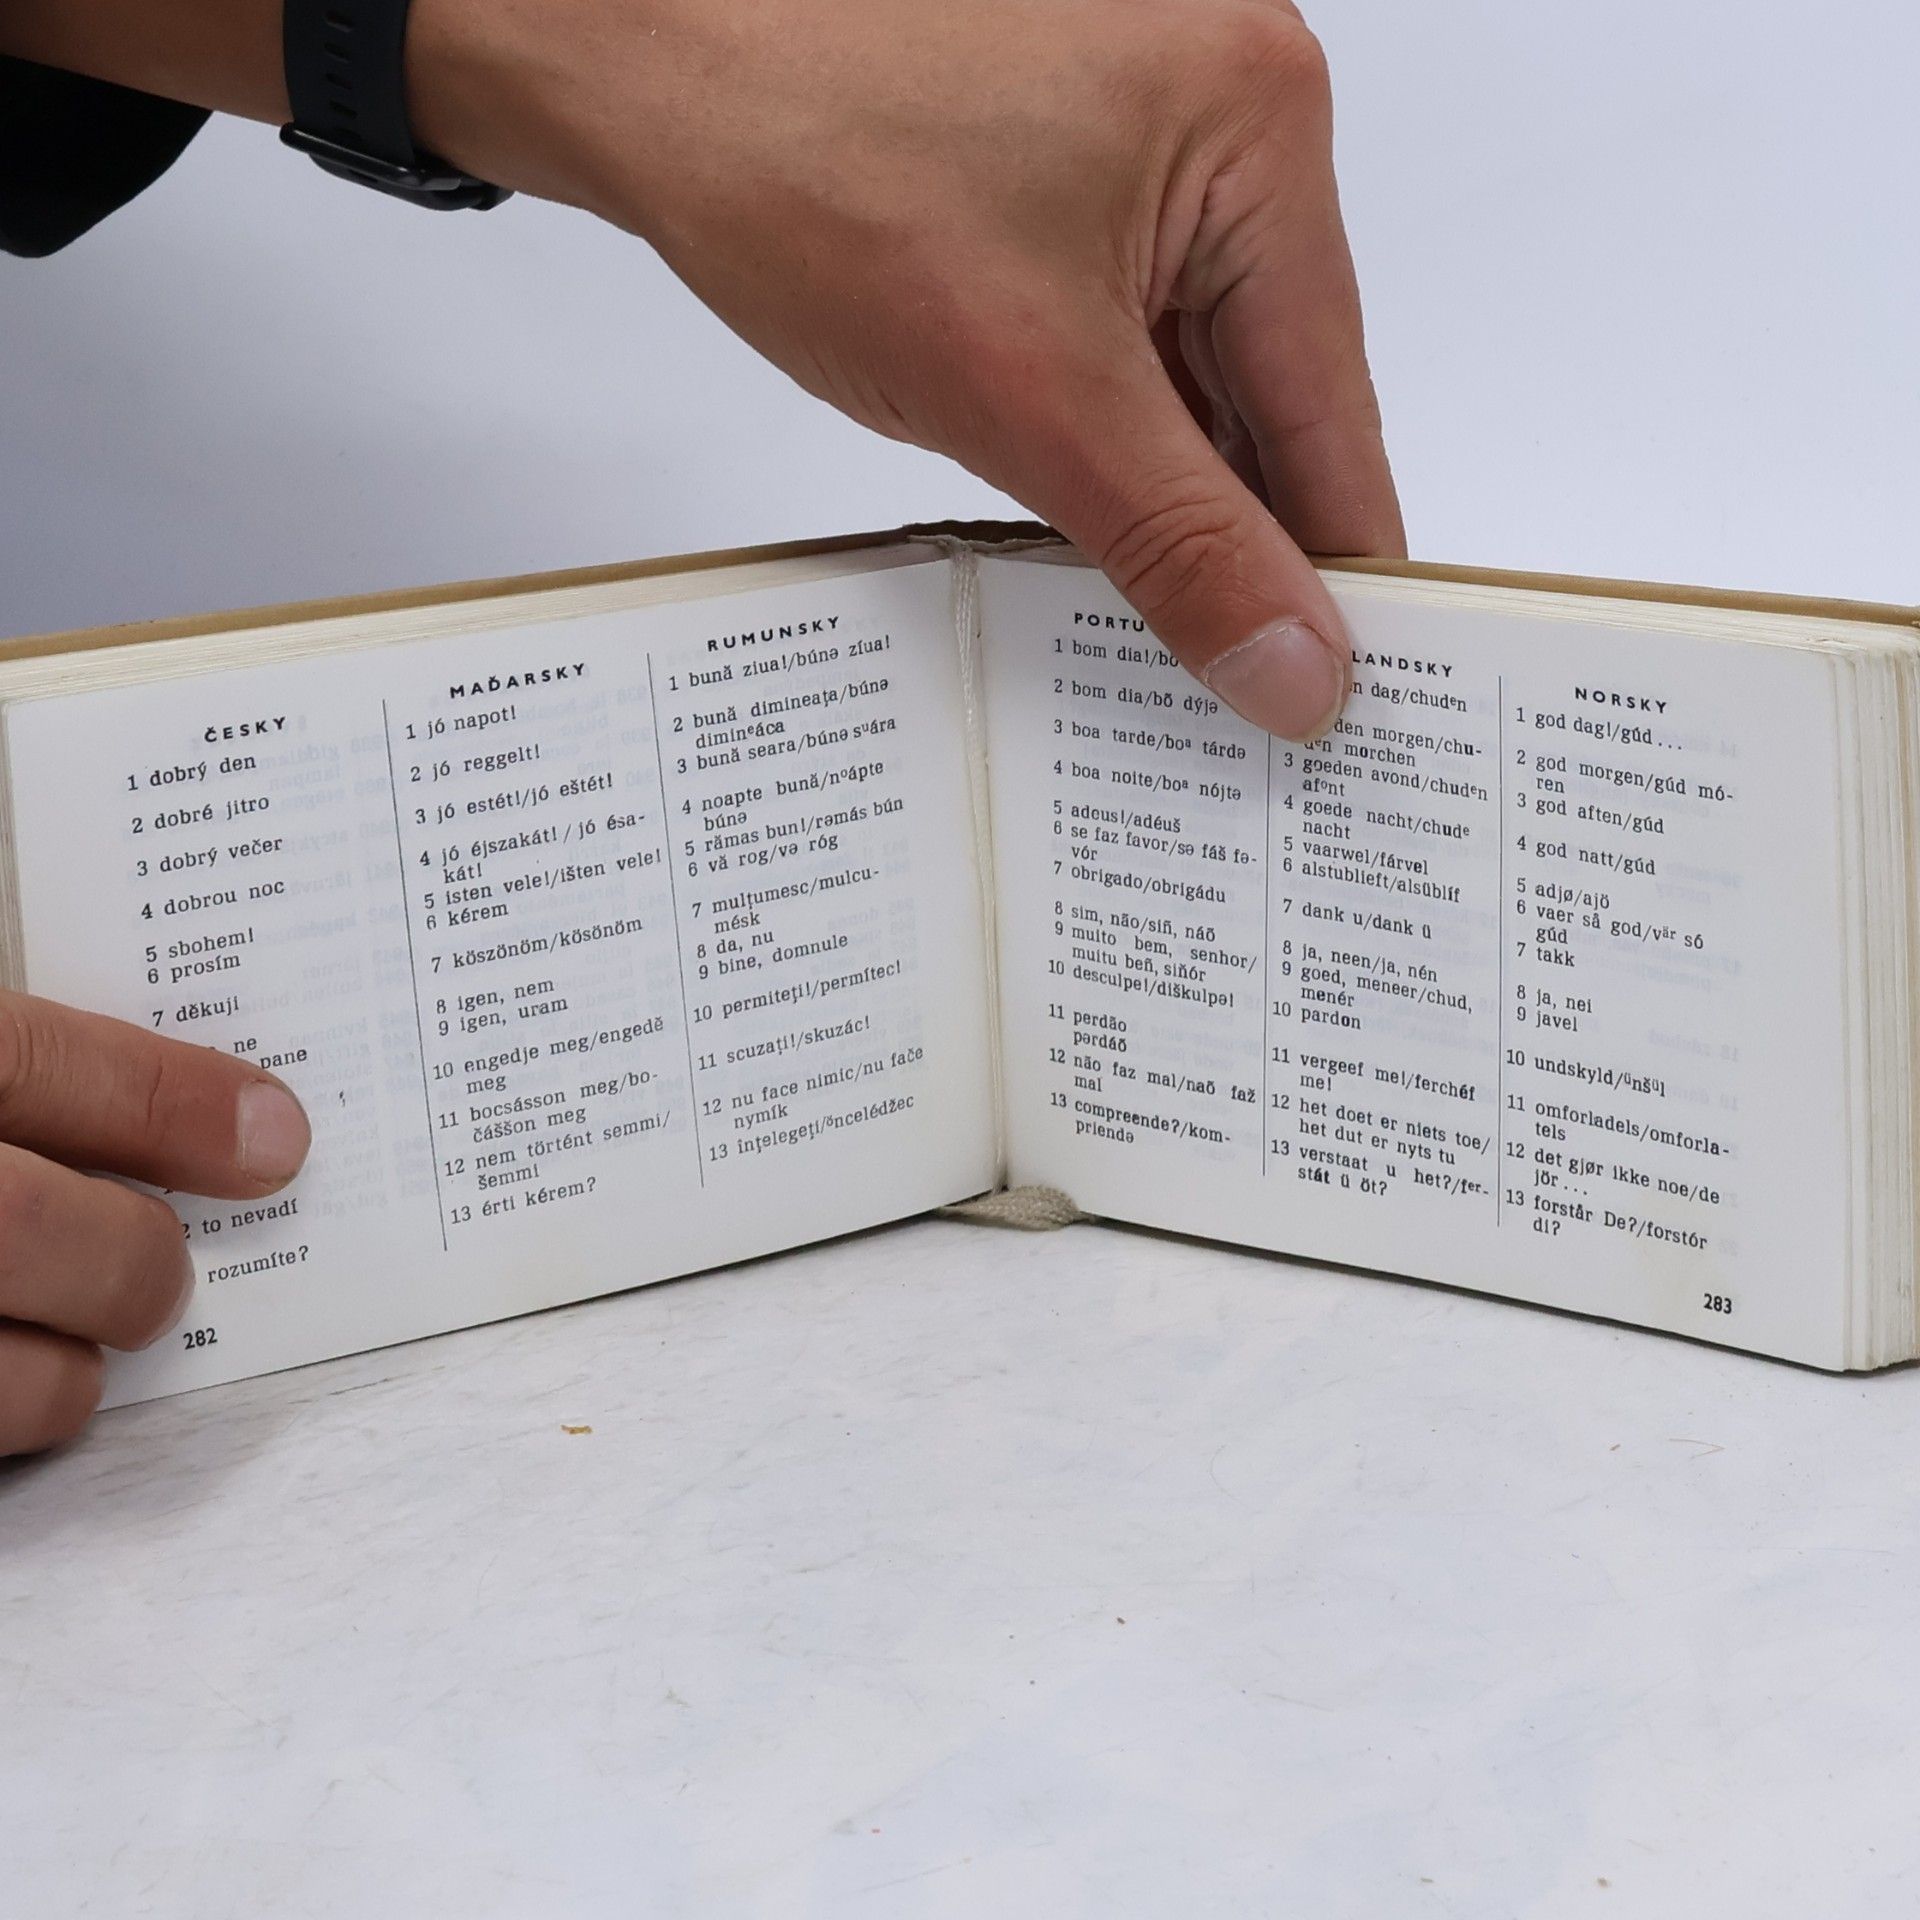 ČESKY
1 dobrý den
2 dobré jitro
3 dobrý večer
4 dobrou noc
5 sbohem!
6 prosím
7 děkuji
ne
pane
to nevadí
rozumíte?
282
MAĎARSKY
1 jó napot!
2 jó reggelt!
3 jó estét!/jó eštét!
4 jó éjszakát! / jó ésa-
kát!
5 isten vele!/išten vele!
6 kérem
7 köszönöm/kösönöm
8 igen, nem
9 igen, uram
10 engedje meg/engedě
meg
11 bocsásson meg/bo-
čáššon meg
12 nem történt semmi/
šemmi
13 érti kérem?
RUMUNSKY
1 bună ziua!/búnə zíua!
2 bună dimineaţa/búnə
dimineáca
3 bună seara/búnə sᵘára
4 noapte bună/nᵒápte
búnə
5 rămas bun!/rəmás bún
6 vă rog/və róg
7 mulţumesc/mulcu-
mésk
8 da, nu
9 bine, domnule
10 permiteţi!/permítec!
11 scuzaţi!/skuzác!
12 nu face nimic/nu fače
nymík
13 înţelegeţi/ᵒncelédžec
1 bom dia!/bõ
2 bom dia/bõ dýjə
3 boa tarde/boᵃ tárdə
4 boa noite/boᵃ nójtə
5 adeus!/adéuš
6 se faz favor/sə fáš fə-
vór
7 obrigado/obrigádu
8 sim, não/siñ, náõ
9 muito bem, senhor/
muitu beñ, siňór
10 desculpe!/diškulpə!
11 perdão
pərdáõ
12 não faz mal/naõ faž
mal
13 compreende?/kom-
priendə
LANDSKY
dag/chudᵉn
den morgen/chu-
dᵉn morchen
3 goeden avond/chudᵉn
afᵒnt
4 goede nacht/chudᵉ
nacht
5 vaarwel/fárvel
6 alstublieft/alsüblíf
7 dank u/dank ü
8 ja, neen/ja, nén
9 goed, meneer/chud,
menér
10 pardon
11 vergeef me!/ferchéf
me!
12 het doet er niets toe/
het dut er nyts tu
13 verstaat u het?/fᵉr-
stát ü öt?
NORSKY
1 god dag!/gúd ...
2 god morgen/gúd mó-
ren
3 god aften/gúd
4 god natt/gúd
5 adjø/ajö
6 vaer så god/vär só
gúd
7 takk
8 ja, nei
9 javel
10 undskyld/ünšül
11 omforladels/omforla-
tels
12 det gjør ikke noe/de
jör ...
13 forstår De?/forstór
di?
283